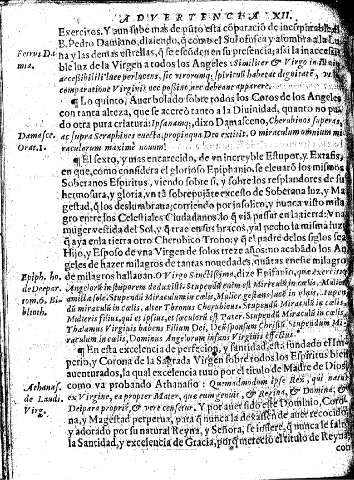 ADVERTENCIA XII.
Exercitos. Y aun sube mas de punto esta comparacion de incomparable, el
Ferrus Da-
mia.
B. Pedro Damiano, diziendo, que como el Sol ofusca y assombra a la Lu-
na y las demàs estrellas, que se escōden en su presencia; assi la inaccessi-
ble luz de la Virgen a todos los Angeles: Similiter & Virgo in illa in-
accessibili luce perlucens, sic vtrorumq; spirituū habetat dignitatē, vt
comparatione Virginis nec possint, nec debeant apparere.
¶ Lo quinto, Auer bolado sobre todos los Coros de los Angeles
con tanta alteza, que se acercò tanto a la Diuinidad, quanto no pu-
do otra pura criatura: Ipsamq; dixo Damasceno, Cherubinos superat,
Damasce.
Orat. 1.
ac supra Seraphines euecta, propinqua Deo extitit. O miraculum omnium mi-
raculorum maximè nouum!
¶ El sexto, y mas encarecido, de vn increyble Estupor, y Extasis,
en que, como considera el glorioso Epiphanio, se eleuarō los mismos
Soberanos Espiritus, viendo sobre si, y sobre los resplandores de su
hermosura, y gloria, vn tā sobrepujāte excesso de Soberana luz, y Ma-
gestad, q̄ los deslumbraua; corriendo por insolito, y nunca visto mila-
gro entre los Celestiales Ciudadanos. lo q̄ viā passar en la tierra: Vna
muger vestida del Sol, y q̄ trae en sus braços, y al pecho la misma luz
q̄ aya en la tierra otro Cherubico Trono, y q̄ el padre de los siglos sea
Hijo, y Esposo de vna Virgen de solos treze años no acabādo los An-
geles de hazer milagros de tantas nouedades, quātas en esse milagro
Epiph. ho.
de Deipar.
tom. 6. Bi-
blioth.
de milagros hallauan. O Virgo Sanctissima, dize Epifanio, quæ exercitus
Angelorū in stuporem deduxisti. Stupendū enim est Miraculū in cælis, Mulier
amicta sole. Stupendū Miraculum in cælis, Mulier gestans lucē in vlnis. Stupen-
dū miraculū in cælis, alter Thronus Cherubicus. Stupendū Miraculū in cælis,
Mulieris filius, qui est ipsius, et sæculorū est Pater. Stupendū Miraculū in cælis,
Thalamus Virginis habens Filium Dei, Desponsum Christū. Stupendum Mi-
raculum in cælis, Dominus Angelorum infans Virginis effectus.
¶ En esta excelencia de perfeccion, y santidad, està fundado el Im-
perio, y Corona de la Sagrada Virgen sobre todos los Espiritus bien
auenturados, la qual excelencia tuuo por el titulo de Madre de Dios,
Athanas.
de Laudi.
Virg.
como va probando Athanasio: Quemadmodum ipse Rex, qui natus
ex Virgine, ea propter Mater, quæ eum genuit, & Regina, & Domina, &
Deipara propriè, & verè censetur. Y por auer sido este Dominio, Coro-
na, y Magestad perpetua, para q̄ nunca la dexassen de auer reconocido,
y adorado por su natural Reyna, y Señora, se infiere, q̄ nunca le faltò
la Santidad, y excelencia de Gracia, por q̄ mereciò el titulo de Reyna